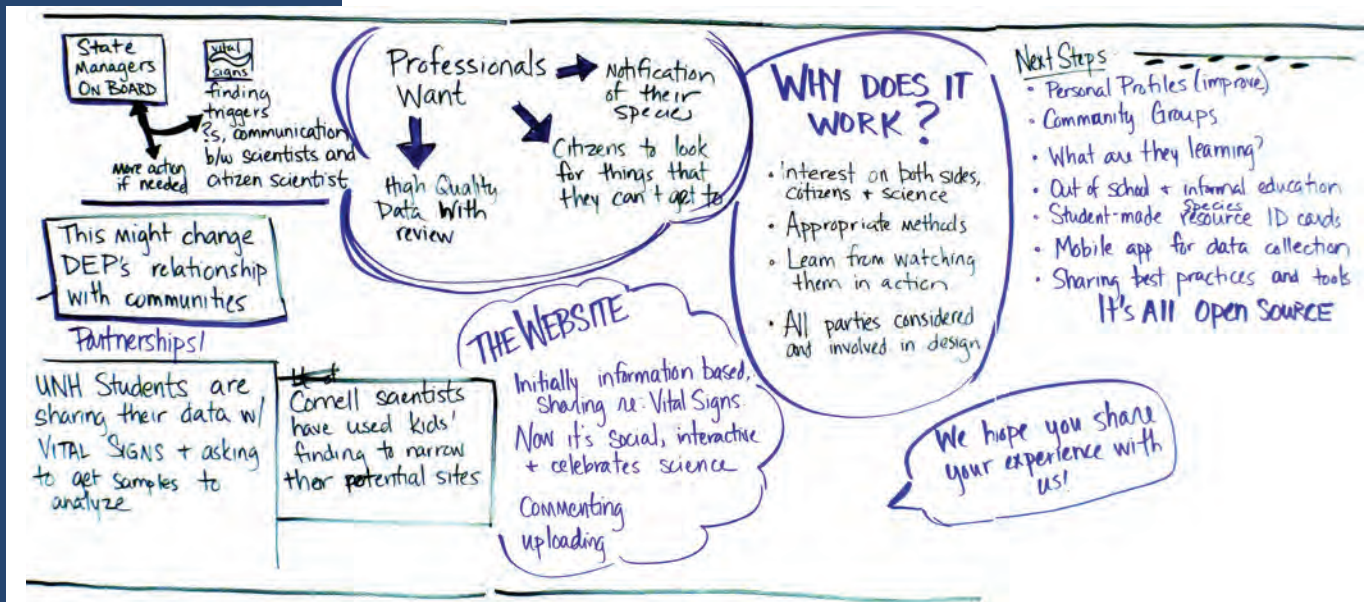 State
Managers
On Board
More action
if needed
vital
signs
finding
triggers
?s, communication
b/w scientists and
citizen scientist
This might change
DEP's relationship
with communities
Partnerships!
UNH Students are
sharing their data w/
VITAL SIGNS + asking
to get samples to
analyze
Cornell scientists
have used kids'
finding to narrow
their potential sites
Professionals
Want
Notification
of their
species
Citizens to look
for things that
they can't get to
High Quality
Data With
review
THE WEBSITE
Initially information based,
sharing re: Vital Signs
Now it's social, interactive
+ celebrates science
Commenting
uploading
WHY DOES IT
WORK?
• interest on both sides,
citizens + science
• Appropriate methods
• Learn from watching
them in action
• All parties considered
and involved in design
Next Steps
• Personal Profiles (improve)
• Community Groups
• What are they learning?
• Out of school + informal education
• Student-made Species resource ID cards
• Mobile app for data collection
• Sharing best practices and tools
It's All Open Source
We hope you share
your experience with
us!